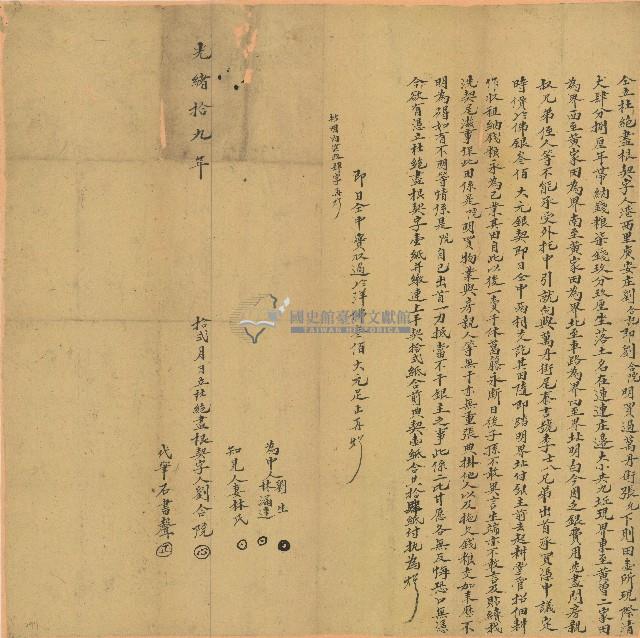 仝立杜絕盡根契字人港西里廣安庄劉合院即劉合院明買過萬丹街張九下則田壹所現際清
丈肆分捌厘年帶納錢粮柒錢玖分玖厘生落土名在連連庄邊大小共九坵現界東至黃曾二家田
為界西至黃家田為界南至黃家田為界北至車路為界四至界址明白今因乏銀費用先盡問房親
叔兄弟侄人等不能承受外托中引就向與萬丹街尾李書號李士八兄弟出首承買憑中議定
時價冷佛銀叁佰大元銀契即日仝中兩相交訖其田隨即踏明界址付銀主前去起耕掌管招佃耕
作收租納錢粮永為己業其田自此以後一賣千休葛藤永斷日後子孫不敢異言生端亦不敢言及貼贖找
洗契尾滋事保此田係是院明買物業與房親人等無干亦無重張典掛他人以及拖欠錢粮交加來歷不
明為碍如有不明等情係是院自己出首一力抵當不干銀主之事此係二比甘愿各無反悔恐口無憑
今欲有憑立杜絕盡根契字壹紙并繳連上手契拾弍紙合前典契壹紙合共拾肆紙付執為炤
即日仝中實收過冷洋佛叁佰大元足止再炤
為中人劉生
林滿達
知見人妻林氏
光緒拾九年 拾弍月日立杜絕盡根契字人劉合院
代筆石書聲
國史館臺灣文獻館
TAIWAN HISTORICA